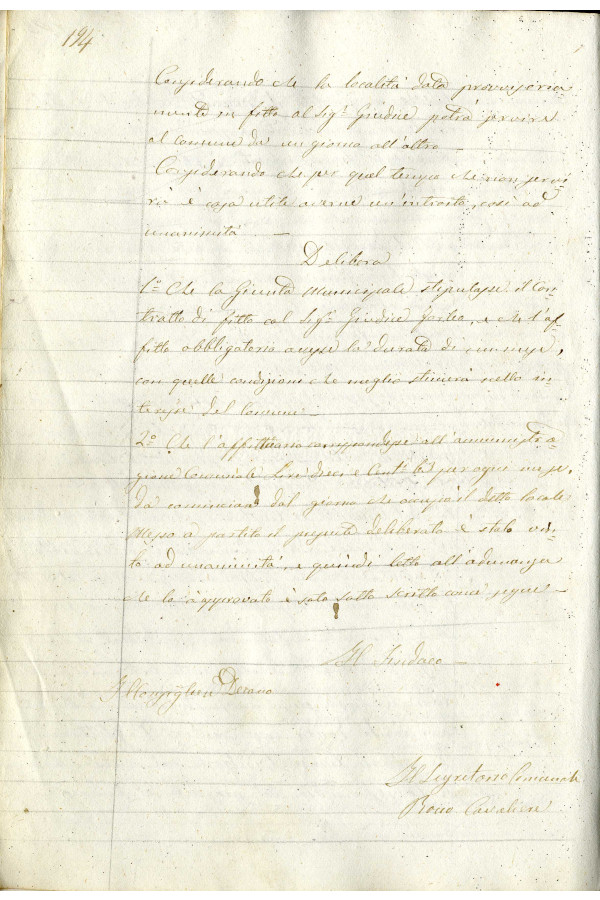 194
Considerando che la località data provvisoria
mente in fitto al Sig.r Giudice potrà servire
al comune da un giorno all'altro
Considerando che per quel tempo che non servi
rà è cosa utile averne un introito, così ad
unanimità —
Delibera
1.º Che la Giunta Municipale stipulasse il Con
tratto di fitto col Sig.r Giudice e che l'af
fitto obbligatorio avesse la durata di un mese,
con quelle condizione che meglio stimerà nello in
teresse del Comune —
2.º Che l'affittuario corrispondesse all'amministra
zione Comunale Lire dieci e Cent.mi per ogni mese,
da cominciare dal giorno che occupò il detto locale
Messo a partito il presente deliberato è stato vin
to ad unanimità, e quindi letto all'adunanza
che lo à approvato è stato sotto scritto come segue —
Il Sindaco —
Il Consigliere Decano
Il Segretario Comunale
Rocco Cavaliere